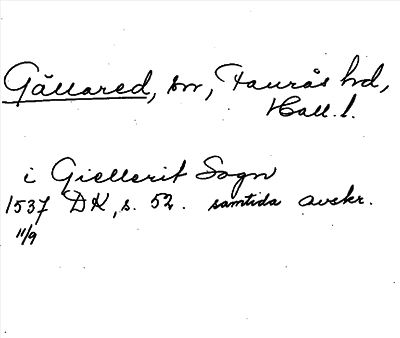 Gällared, sn, Faurås hd,
Hall. l.
i Giellerit Sogn
1537 DK, s. 52. samtida avskr.
11/9